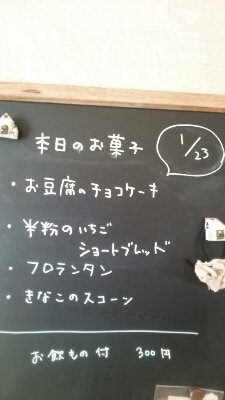 本日のお菓子
1/23
・お豆腐のチョコケーキ
・米粉のいちご
ショートブレッド
・フロランタン
・きなこのスコーン
お飲もの付 300円